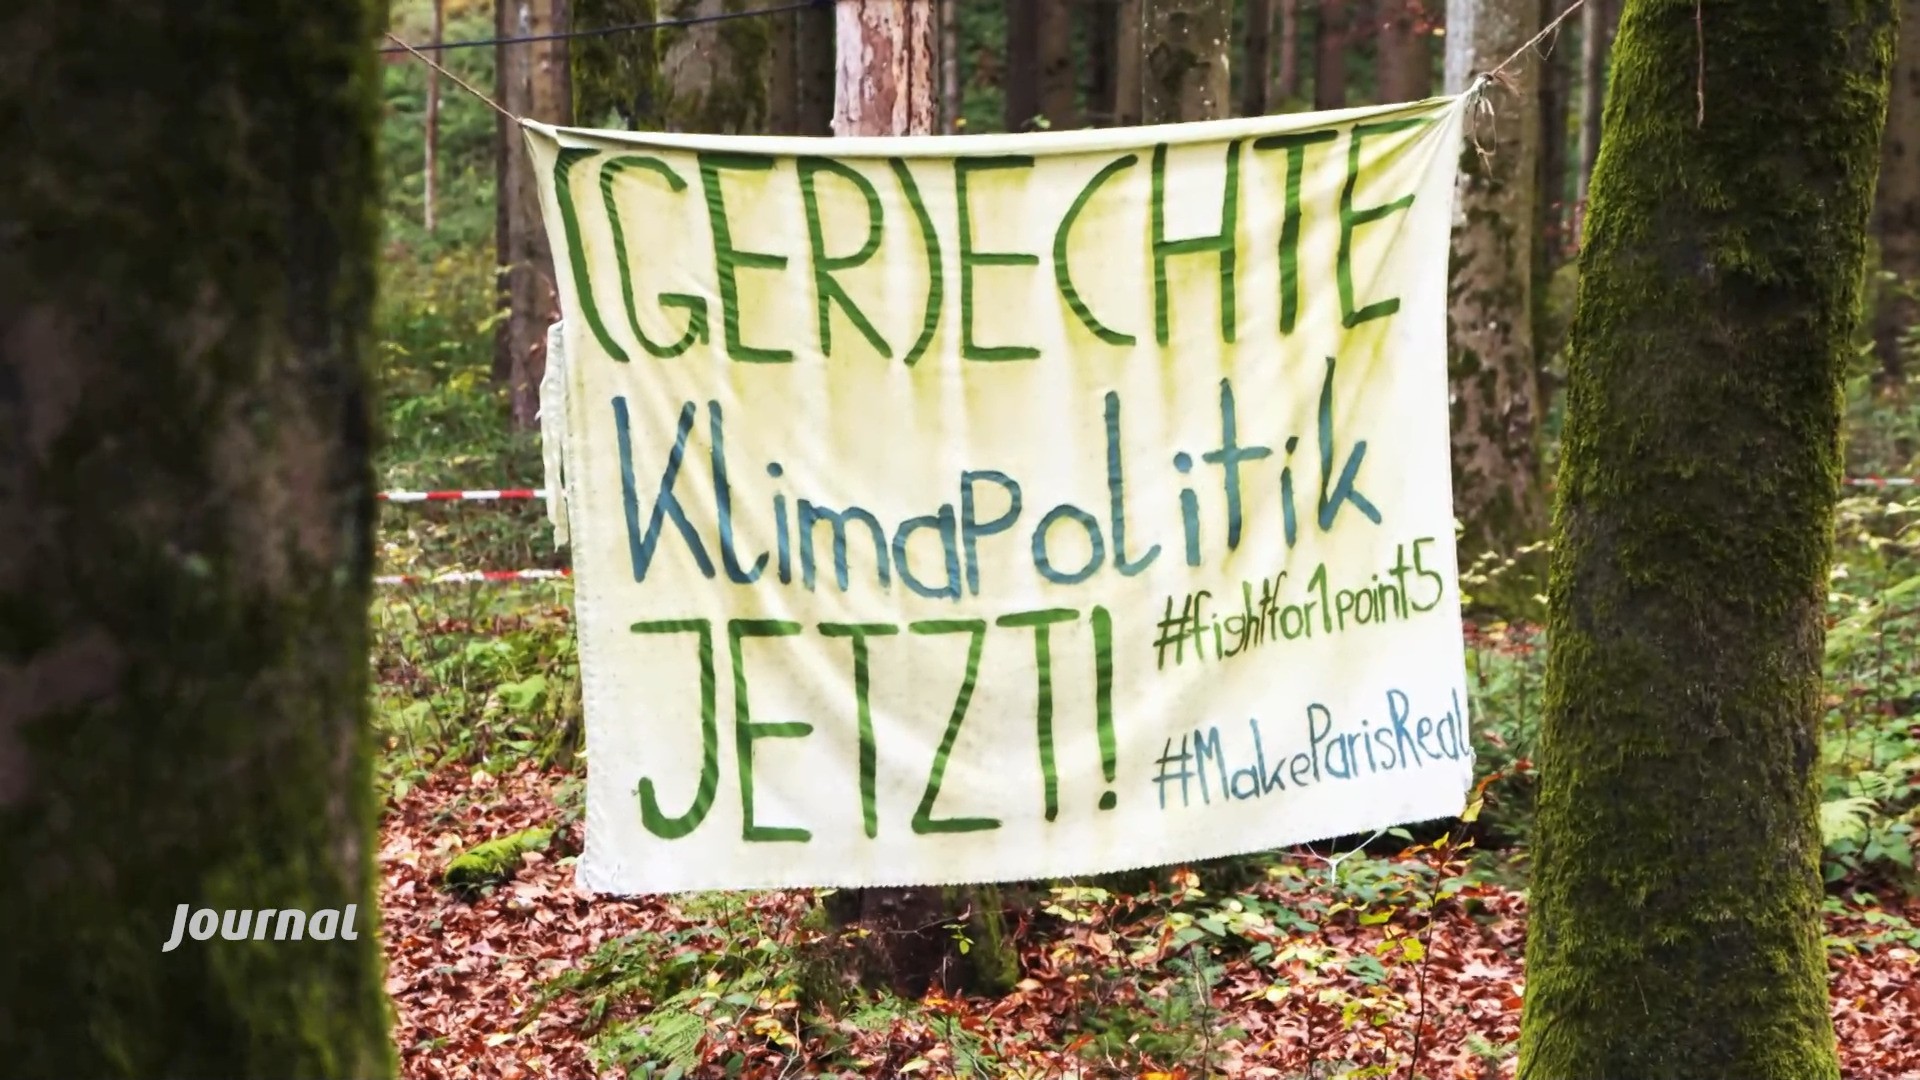 (GER)ECHTE
KlimaPolitik
JETZT!
#fightfor1point5
#MakeParisReal
Journal